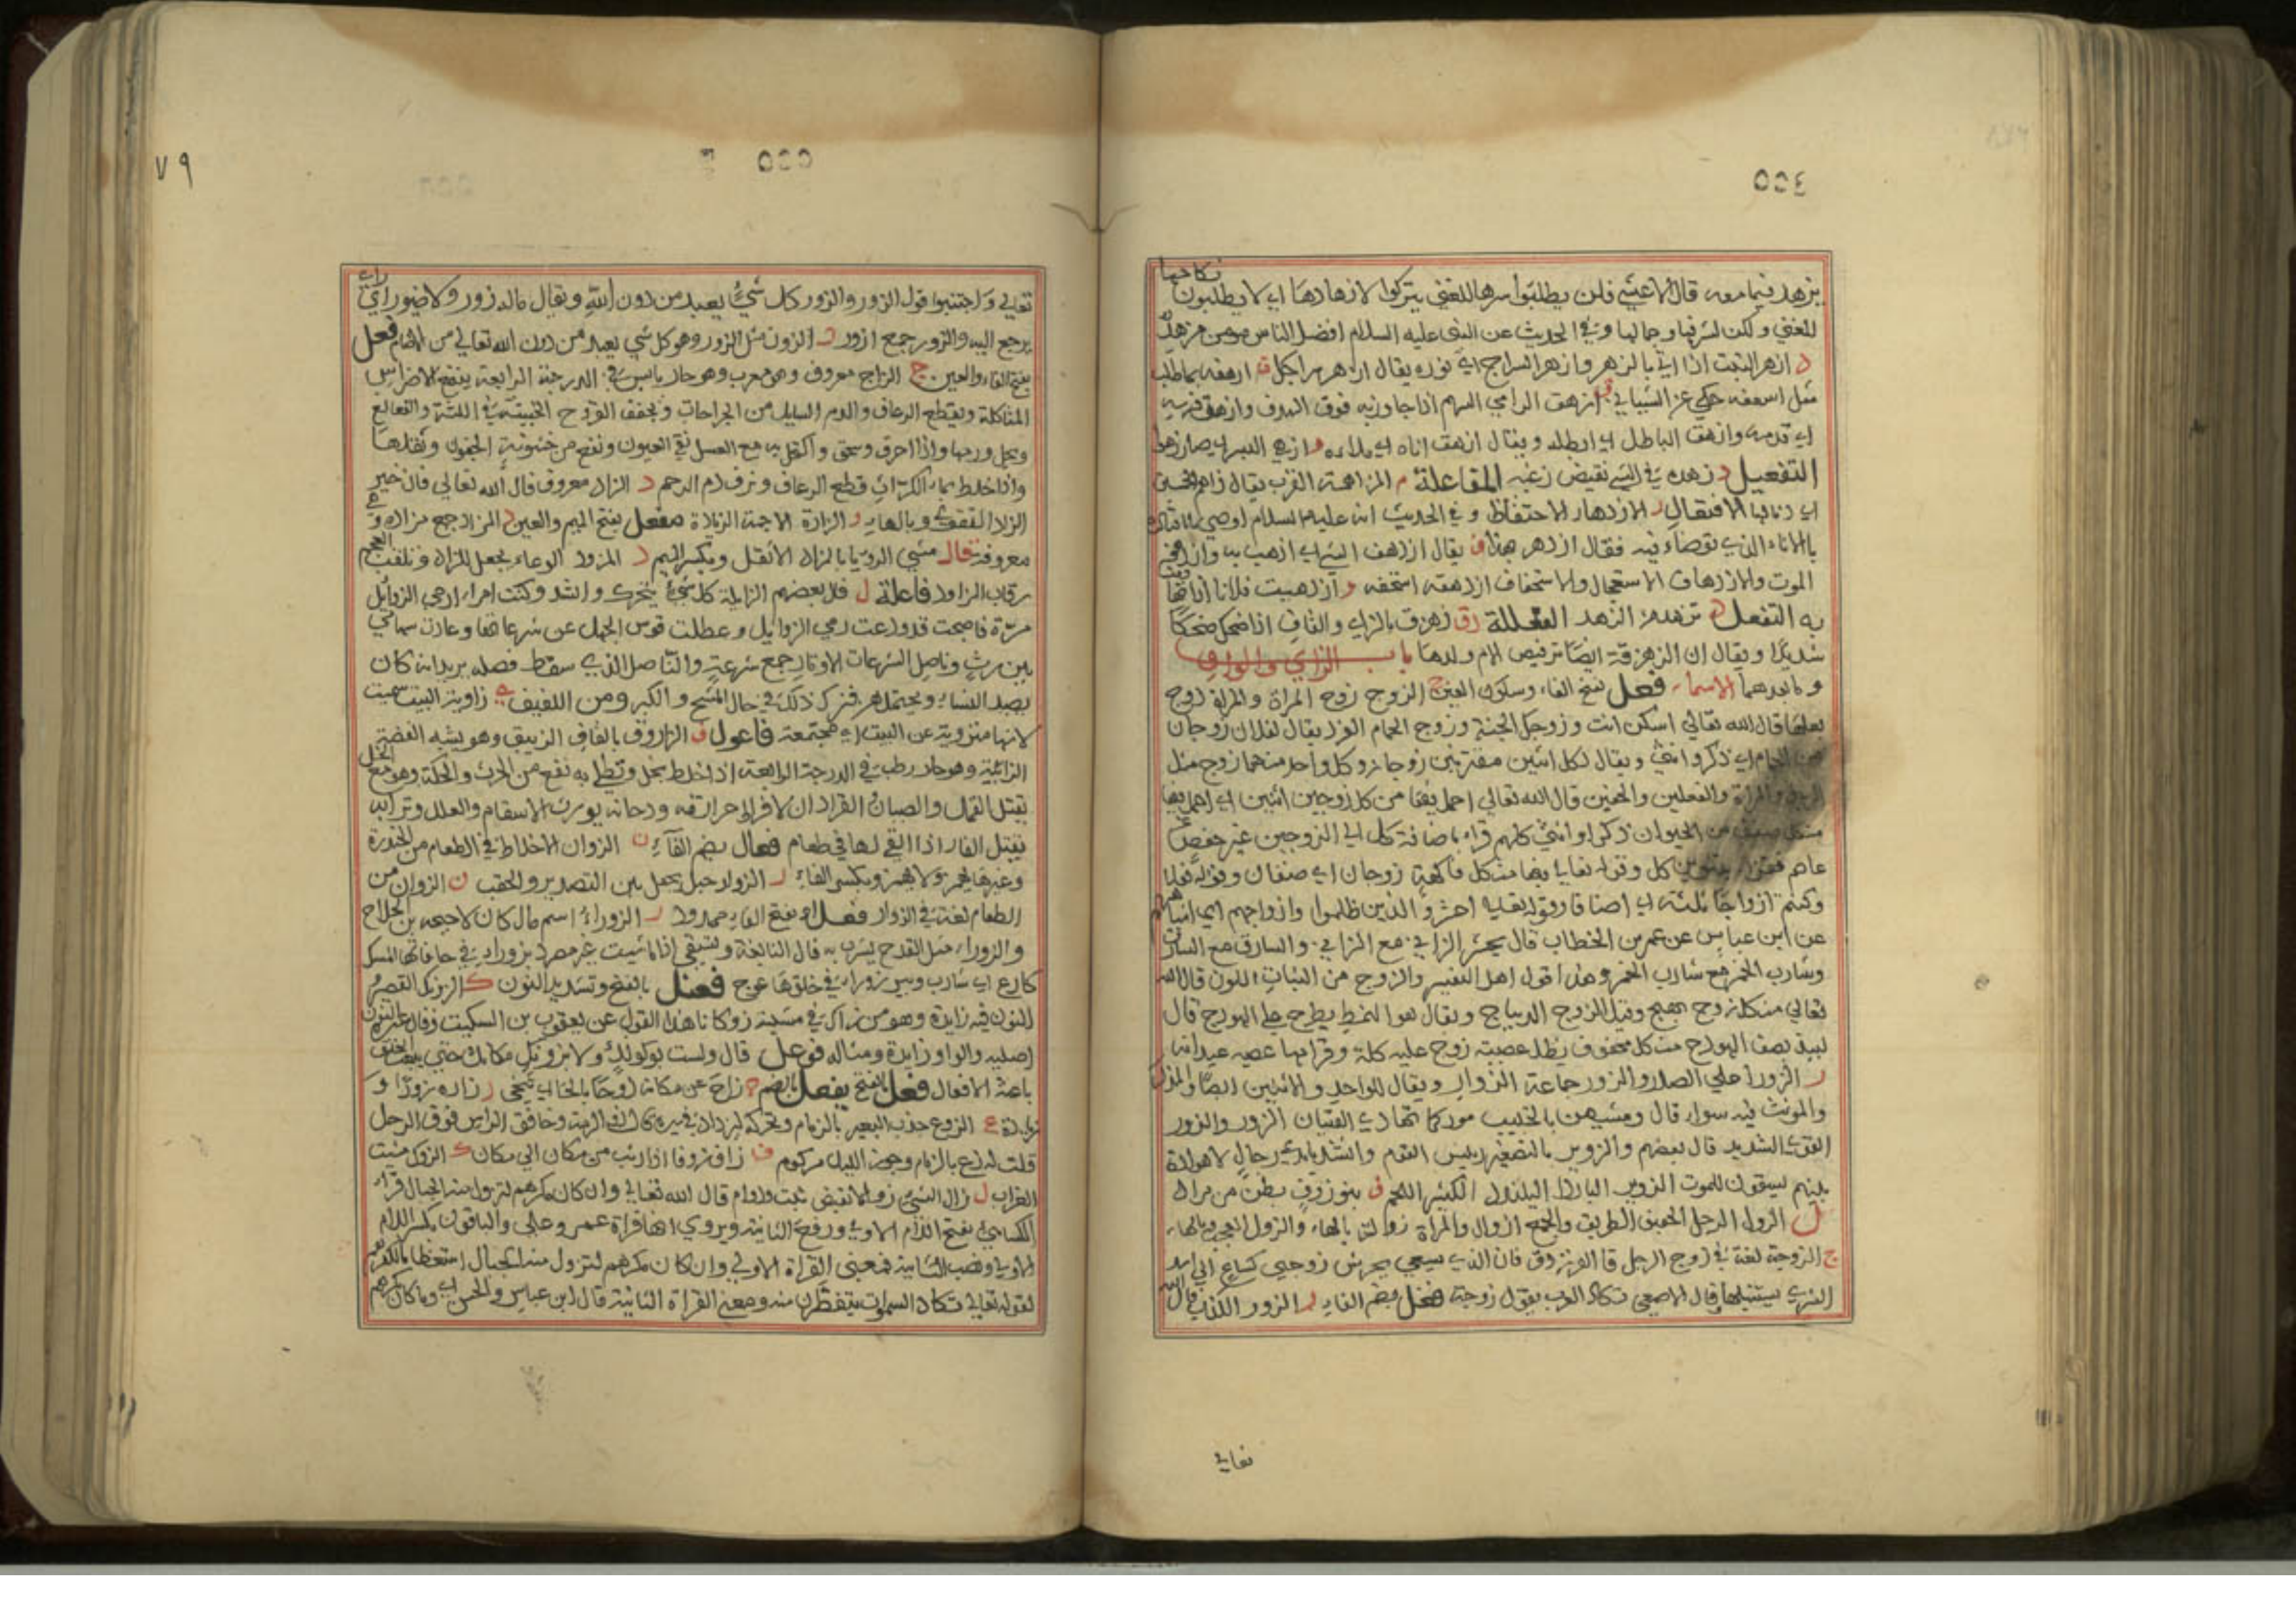 ٥٥٤
يزهد فيما معه قال الاعشي فلن يطلبوا سرها للغني ولن يتركوا لازهادها اي لا يطلبون نكاحها
للغني ولكن لشرفها وجمالها وفي الحديث عن النبي عليه السلام افضل الناس مومن مزهد
د ازهر النبت اذا اتي بالزهر وازهر السراج اي نوره يقال ازهر سراجك ف ازهفه بما طلب
مثل اسعفه حكي عن الشيباني ق ازهق الرامي السهم اذا جاوز به فوق الهدف وازهق فرسه
اي قدمه وازهق الباطل اي ابطله ويقال ازهق اناه اي ملاءه و ازهي البسر اي صار زهوا
التفعيل د زهده في الشي نقيض رغبه المفاعلة م المزاهمة القرب يقال زاهم الخمسين
اي دنا لها الافتعال ر الازدهار الاحتفاظ وفي الحديث انه عليه السلام اوصي ابا قتادة
بالاناء الذي توضاء فيه فقال ازدهر بهذا ف يقال ازدهف الشي اي اذهب به وازدهفه
الموت والازدهاف الاستعجال والاستخفاف ازدهفه استخفه و ازدهيت فلانا اذا تهاونت
به التفعل د تزهد من الزهد الفعللة زق زهزق بالزاي والقاف اذا ضحك ضحكا
شديدا ويقال ان الزهزقة ايضا ترقيص الام ولدها باب الزاي والواو
وما بعدهما الاسماء فعل بفتح الفاء وسكون العين ج الزوج زوج المراة والمراة زوج
بعلها قال الله تعالي اسكن انت وزوجك الجنة وزوج الحمام الفرد يقال لفلان زوجان
من الحمام اي ذكر وانثي ويقال لكل اثنين مقترنين زوجان وكل واحد منهما زوج مثل
الرجل والمراة والنعلين والخفين قال الله تعالي احمل فيها من كل زوجين اثنين اي احمل فيها
من كل صنف من الحيوان ذكرا وانثي كلهم قراء باضافة كل الي الزوجين غير حفص عن
عاصم فقراء بتنوين كل وقوله تعالي فيهما من كل فاكهة زوجان اي صنفان وقوله تعالي
وكنتم ازواجا ثلثة اي اصنافا وقوله تعالي احشروا الذين ظلموا وازواجهم اي اشباههم
عن ابن عباس عن عمر بن الخطاب قال يحشر الزاني مع الزاني والسارق مع السارق
وشارب الخمر مع شارب الخمر وهذا قول اهل التفسير والزوج من النبات اللون قال الله
تعالي من كل زوج بهيج وقيل الزوج الديباج ويقال هو النمط يطرح علي الهودج قال
لبيد يصف الهودج من كل محفوف يظل عصيه زوج عليه كلة وقرامها عصيه عيدانه
ر الزور اعلي الصدر والزور جماعة الزوار ويقال للواحد والاثنين ايضا والمذكر
والمونث فيه سواء قال ومشيهن بالخبيب مور كما تهادي الفتيات الزور والزور
القوي الشديد قال بعضهم والزوير بالتصغير رييس القوم وانشد بايدي رجال لا هوادة
بينهم يسوقون للموت الزوير البلنددا البلندد الكثير اللحم ف بنو زوف بطن من مراد
ل الزول الرجل الخفيف الظريف والجمع ازوال والمراة زولة بالهاء والزول العجب وبالهاء
ج الزوجة لغة في زوج الرجل قال الفرزدق فان الذي يسعي يحرش زوجتي كساع الي اسد
الشري يستبيلها قال الاصمعي تكاد العرب تقول زوجة فعل بضم الفاء ر الزور الكذب قال الله
تعالي
٧٩
٥٥٥
تعالي واجتنبوا قول الزور والزور كل شيء يعبد من دون الله ويقال ماله زور ولا صيور اي راي
يرجع اليه والزور جمع ازور ن الزون مثل الزور وهو كل شي يعبد من دون الله تعالي من الاصنام فعل
بفتح الفاء والعين ج الزاج معروف وهو معرب وهو حار يابس في الدرجة الرابعة ينفع الاضراس
المتاكلة ويقطع الرعاف والدم السايل من الجراحات ويجفف القروح الخبيثة في اللثة والقلاع
ويحل ورمها واذا احرق وسحق واكتحل به مع العسل نقي العيون ونفع من خشونة الجفون وثقلها
واذا خلط بماء الكراث قطع الرعاف ونزف دم الرحم د الزاد معروف قال الله تعالي فان خير
الزاد التقوي وبالهاء ر الزارة الاجمة الزيادة مفعل بفتح الميم والعين د المزاد جمع مزادة وهي
معروفة قال مشي الروايا بالمزاد الاثقل وبكسر الميم د المزود الوعاء يجعل للزاد وتلقب العجم
برقاب المزاود فاعلة ل قال بعضهم الزايلة كل شيء يتحرك وانشد وكنت امراء ارمي الزوايل
مرة فاصبحت قد ودعت رمي الزوايل وعطلت قوس الجهل عن شرعاتها وعادت سهامي
بين رث وناصل الشرعات الاوتار جمع شرعة والناصل الذي سقط نصله يريد انه كان
يصيد النساء ويختلهن فترك ذلك في حال الشيخ والكبر ومن اللفيف ي زاوية البيت سميت
لانها منزوية عن البيت اي مجتمعة فاعول ق الزاروق بالقاف الزيبق وهو يشبه الفضة
الذائبة وهو حار رطب في الدرجة الرابعة اذا خلط بخل وطلي به نفع من الجرب والحكة وهو مع الخل
يقتل القمل والصيبان القردان لافراط حرارته ودخانه يورث الاسقام والعلل وترابه
يقتل الفار اذا القي لها في طعام فعال بضم الفاء ن الزوان الاخلاط في الطعام من الحنطة
وغيرها يهمز ولا يهمز وبكسر الفاء ر الزوار حبل يجعل بين التصدير والحقب ن الزوان من
الطعام لغة في الزوان فعلاء بفتح الفاء ممدود ر الزوراء اسم مال كان لاحيحة بن الجلاح
والزوراء مثل القدح يشرب به قال النابغة وتسقي اذا ما شيت غير مصرد بزوراء في حافاتها المسك
كارع اي شارب وبير زوراء في خلقها عوج فعنل بالفتح وتشديد النون ك الزونك القصير
النون فيه زايدة وهو من زاك في مشيته زوكانا هذا القول عن يعقوب بن السكيت وقال غيره النون
اصلية والواو زايدة ومثاله فوعل قال ولست بوكواك ولا بزونك مكانك حتي يبعث الخلق
باعثه الافعال فعل بالفتح يفعل بالضم ح زاح عن مكانه زوحا بالحاء اي تنحي ر زاره زورا و
زيارة ع الزوع جذب البعير بالزمام وتحريكه ليزداد في سيره قال ذو الرمة وخافق الراس فوق الرحل
قلت له زع بالزمام وجوز الليل مركوم ف زاف زوفا اذا وثب من مكان الي مكان ك الزوك مشية
الغراب ل زال الشي زوالا نقيض ثبت ودام قال الله تعالي وان كان مكرهم لتزول منه الجبال قراء
الكسائي بفتح اللام الاولي ورفع الثانية ويروي انها قراة عمر وعلي والباقون بكسر اللام
الاولي ونصب الثانية فمعني القراة الاولي وان كان مكرهم لتزول منه الجبال استعظاما لكفرهم
لقوله تعالي تكاد السموات يتفطرن منه ومعني القراة الثانية قال ابن عباس والحسن اي وما كان مكرهم